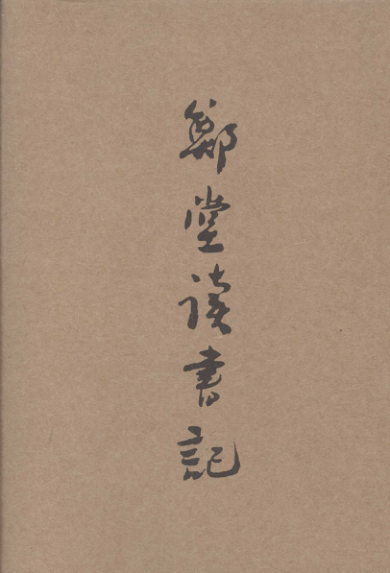 鄭堂读書記